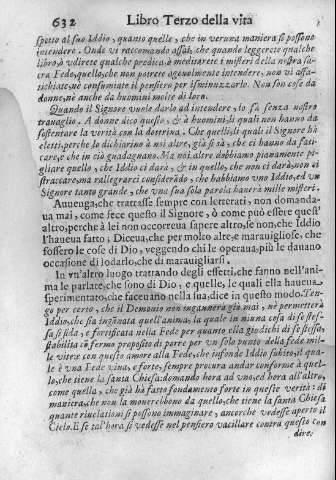 632 Libro Terzo della vita
spetto al suo Iddio, quanto quelle, che in veruna maniera si possono
intendere. Onde vi raccomando assai, che quando leggerete qualche
libro, ò vdirete qualche predica, ò mediterete i misteri della nostra sa-
cra Fede, quello, che non potrete ageuolmente intendere, non vi affa-
tichiate, nè consumiate il pensiero per isminuzzarlo. Non son cose da
donne, nè anche da huomini molte di loro.
Quando il Signore vuole darlo ad intendere, lo fà senza nostro
trauaglio. A donne dico questo, & à huomini, li quali non hanno da
sostentare la verità con la dottrina. Che quelli, li quali il Signore hà
eletti, perche lo dichiarino à noi altre, già si sà, che ci hanno da fati-
care, e che in ciò guadagnano. Ma noi altre dobbiamo pianamente pi-
gliare quello, che Iddio ci darà, & in quello, che non ci darà, non ci
straccare, ma rallegrarci considerãdo, che habbiamo vno Iddio, ed vn
Signore tanto grande, che vna sua sola parola hauerà mille misteri.
Auuenga, che trattasse sempre con letterati, non domanda-
ua mai, come fece questo il Signore, ò come può essere quest'
altro, perche à lei non occorreua sapere altro, se non, che Iddio
l'haueua fatto; Diceua, che per molto alte, e marauigliose, che
fossero le cose di Dio, veggendo chi le operaua, più le dauano
occasione di lodarlo, che di marauigliarsi.
In vn'altro luogo trattando degli effetti, che fanno nell'ani-
ma le parlate, che sono di Dio, e quelle, le quali ella haueua
sperimentato, che faceuano nella sua, dice in questo modo. Ten-
go per certo, che il Demonio non ingannerà già mai, nè permetterà
Iddio, che sia ingãnata quell'anima, la quale in niuna cosa di se stes-
sa si fida, e fortificata nella Fede per quanto ella giudichi di se stessa,
stabilita cõ fermo proposito di porre per vn solo punto della fede mil-
le vite: e con questo amore alla Fede, che infonde Iddio subito, il qua-
le è vna Fede viua, e forte, sempre procura andar conforme à quel-
lo, che tiene la santa Chiesa: domanda hora ad vno, ed hora all'altro,
come quella, che già hà fatto fondamento forte in queste verità: di
maniera, che non la mouerebbono da quello, che tiene la santa Chiesa
quante riuelationi si possono immaginare, ancorche vedesse aperto il
Cielo. E se tal'hora si vedesse nel pensiero vacillare contra questo con
dire: